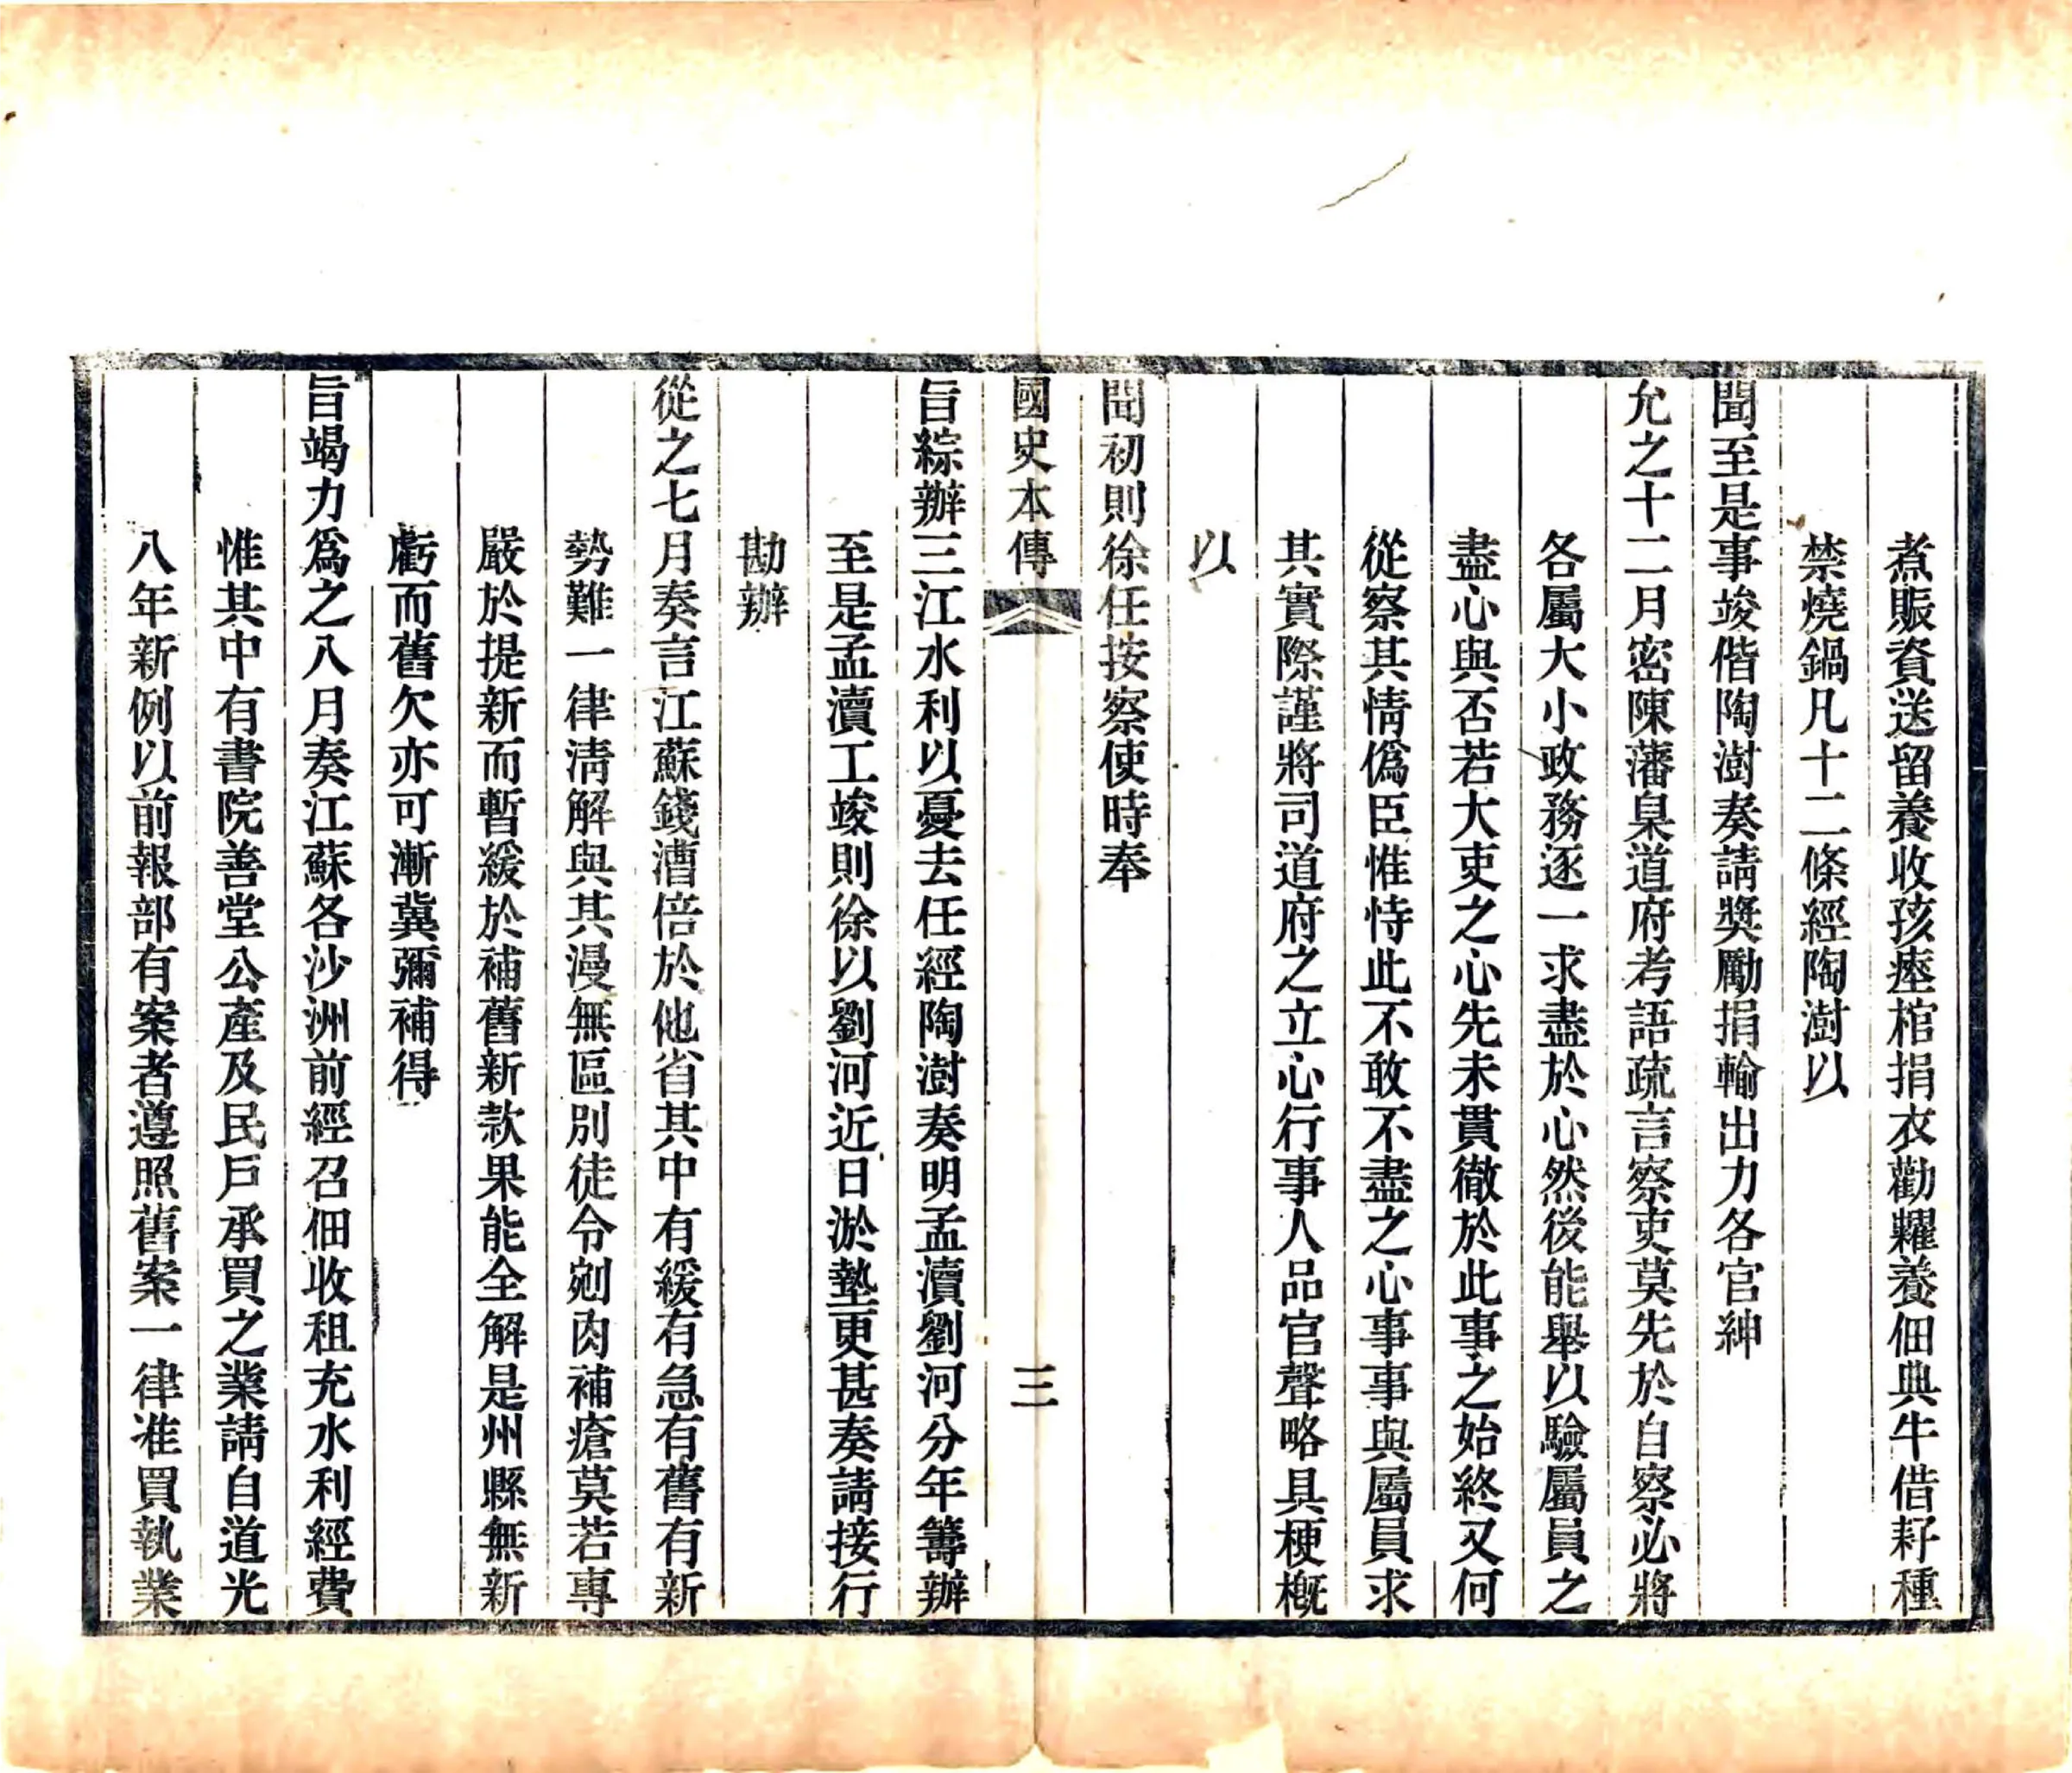 煮賑資送留養收孩瘞棺捐衣勸糶養佃典牛借籽種
禁燒鍋凡十二條經陶澍以
聞至是事竣偕陶澍奏請獎勵捐輸出力各官紳
允之十二月密陳藩臬道府考語疏言察吏莫先於自察必將
各屬大小政務逐一求盡於心然後能舉以驗屬員之
盡心與否若大吏之心先未貫徹於此事之始終又何
從察其情僞臣惟恃此不敢不盡之心事事與屬員求
其實際謹將司道府之立心行事人品官聲略具梗概
以
聞初則徐任按察使時奉
國史本傳 三
旨綜辦三江水利以憂去任經陶澍奏明孟瀆劉河分年籌辦
至是孟瀆工竣則徐以劉河近日淤墊更甚奏請接行
勘辦
從之七月奏言江蘇錢漕倍於他省其中有緩有急有舊有新
勢難一律清解與其漫無區別徒令剜肉補瘡莫若專
嚴於提新而暫緩於補舊新款果能全解是州縣無新
虧而舊欠亦可漸冀彌補得
旨竭力爲之八月奏江蘇各沙洲前經召佃收租充水利經費
惟其中有書院善堂公產及民戶承買之業請自道光
八年新例以前報部有案者遵照舊案一律准買執業